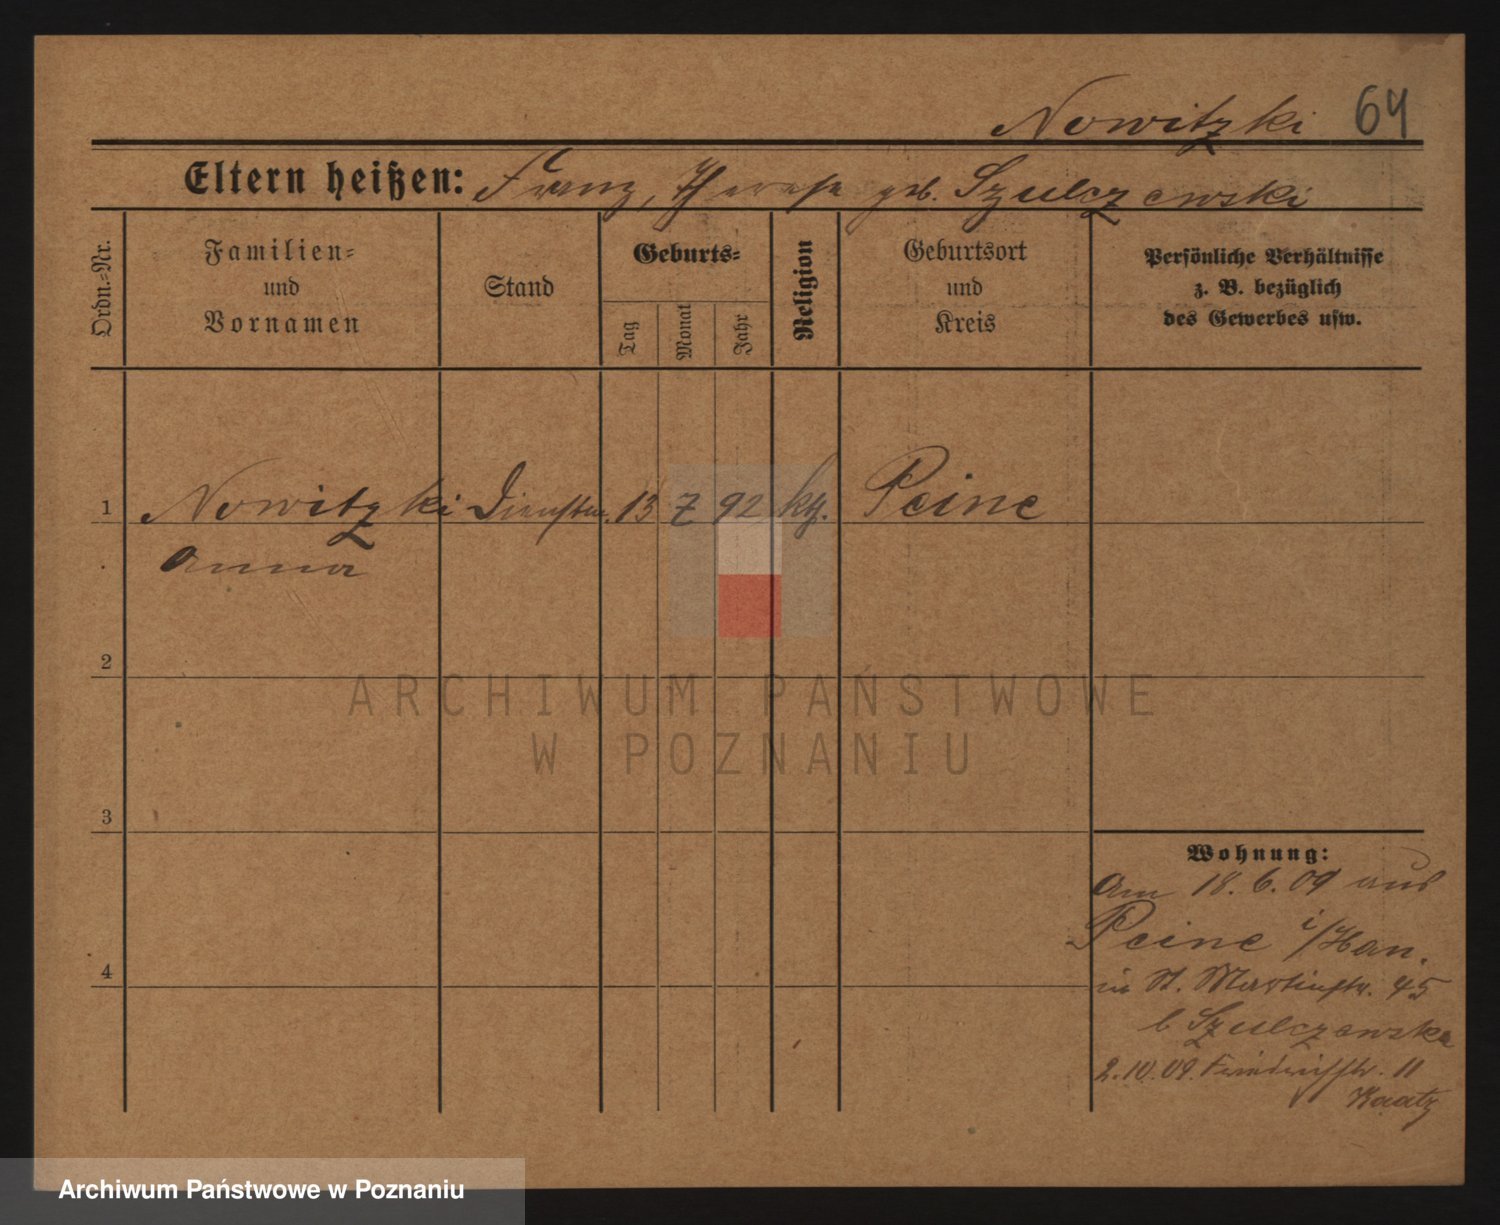 Nowitzki 64
Eltern heißen: Franz, Therese geb. Szulczewski
Ordn.-Nr.
Familien- und Vornamen
Stand
Geburts-
Tag
Monat
Jahr
Religion
Geburtsort und Kreis
Persönliche Verhältnisse z. B. bezüglich des Gewerbes usw.
1 Nowitzki Dienstm. 13 7 92 kth. Peine
Anna
2
ARCHIWUM PAŃSTWOWE
W POZNANIU
3
Wohnung:
Am 18. 6. 09 aus
Peine i/Han.
in St. Martinstr. 45
b Szulczewska
4
2.10.09. Friedrichstr. 11
Kaatz
Archiwum Państwowe w Poznaniu